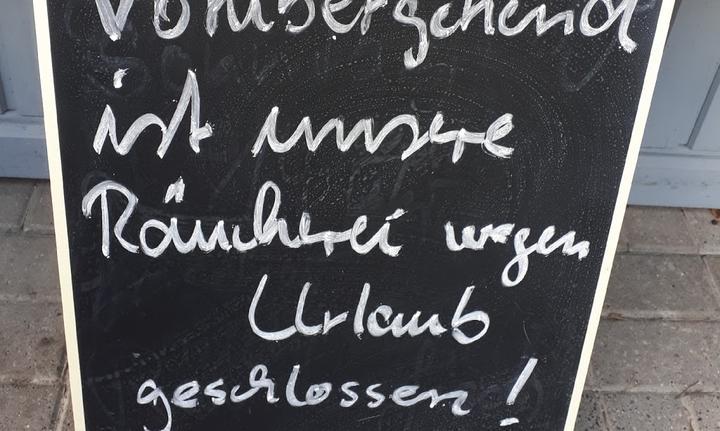 Vorübergehend
ist unsere
Räucherei wegen
Urlaub
geschlossen!